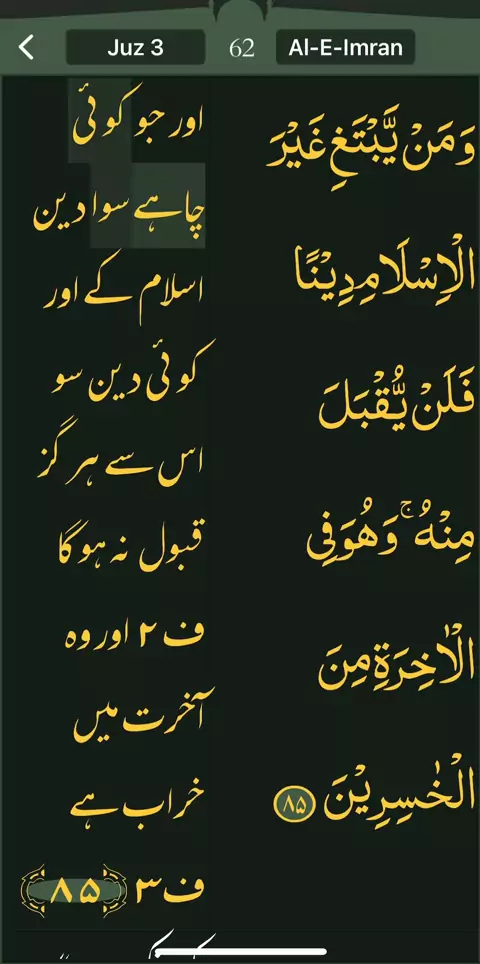 Juz 3 62 Al-E-Imran
وَمَنْ يَّبْتَغِ غَيْرَ
الْاِسْلَامِ دِيْنًا
فَلَنْ يُّقْبَلَ
مِنْهُ ۚ وَهُوَ فِى
الْاٰخِرَةِ مِنَ
الْخٰسِرِيْنَ ۸۵
اور جو کوئی
چاہے سوا دین
اسلام کے اور
کوئی دین سو
اس سے ہرگز
قبول نہ ہوگا
ف ۲ اور وہ
آخرت میں
خراب ہے
ف ۳ ۸۵